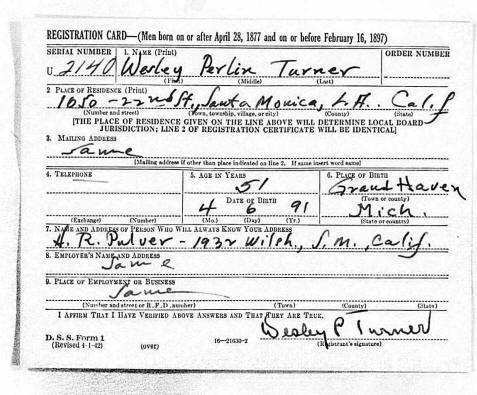 REGISTRATION CARD—(Men born on or after April 28, 1877 and on or before February 16, 1897)
SERIAL NUMBER 1. NAME (Print) ORDER NUMBER
U 2140 Wesley Perlin Turner
(First) (Middle) (Last)
2 PLACE OF RESIDENCE (Print)
1050-22nd St., Santa Monica, L.A. Calif
(Number and street) (Town, township, village, or city) (County) (State)
[THE PLACE OF RESIDENCE GIVEN ON THE LINE ABOVE WILL DETERMINE LOCAL BOARD
JURISDICTION; LINE 2 OF REGISTRATION CERTIFICATE WILL BE IDENTICAL]
3. MAILING ADDRESS
Same
[Mailing address if other than place indicated on line 2. If same insert word same]
4. TELEPHONE 5. AGE IN YEARS 6. PLACE OF BIRTH
51 Grand Haven
DATE OF BIRTH (Town or county)
4 6 91 Mich.
(Exchange) (Number) (Mo.) (Day) (Yr.) (State or country)
7. NAME AND ADDRESS OF PERSON WHO WILL ALWAYS KNOW YOUR ADDRESS
H. R. Pulver - 1932 Wilsh, S.M., Calif.
8. EMPLOYER'S NAME AND ADDRESS
Same
9. PLACE OF EMPLOYMENT OR BUSINESS
Same
(Number and street or R.F.D. number) (Town) (County) (State)
I AFFIRM THAT I HAVE VERIFIED ABOVE ANSWERS AND THAT THEY ARE TRUE.
Wesley P Turner
D. S. S. Form 1
(Revised 4-1-42) (over) 16—21630-2 (Registrant's signature)